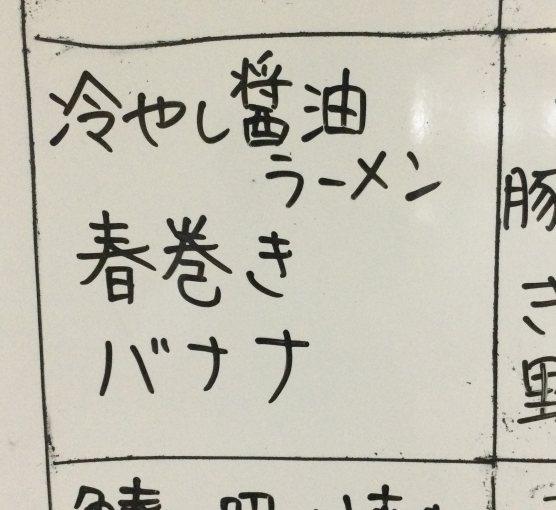 冷やし醤油
ラーメン
春巻き
バナナ
豚